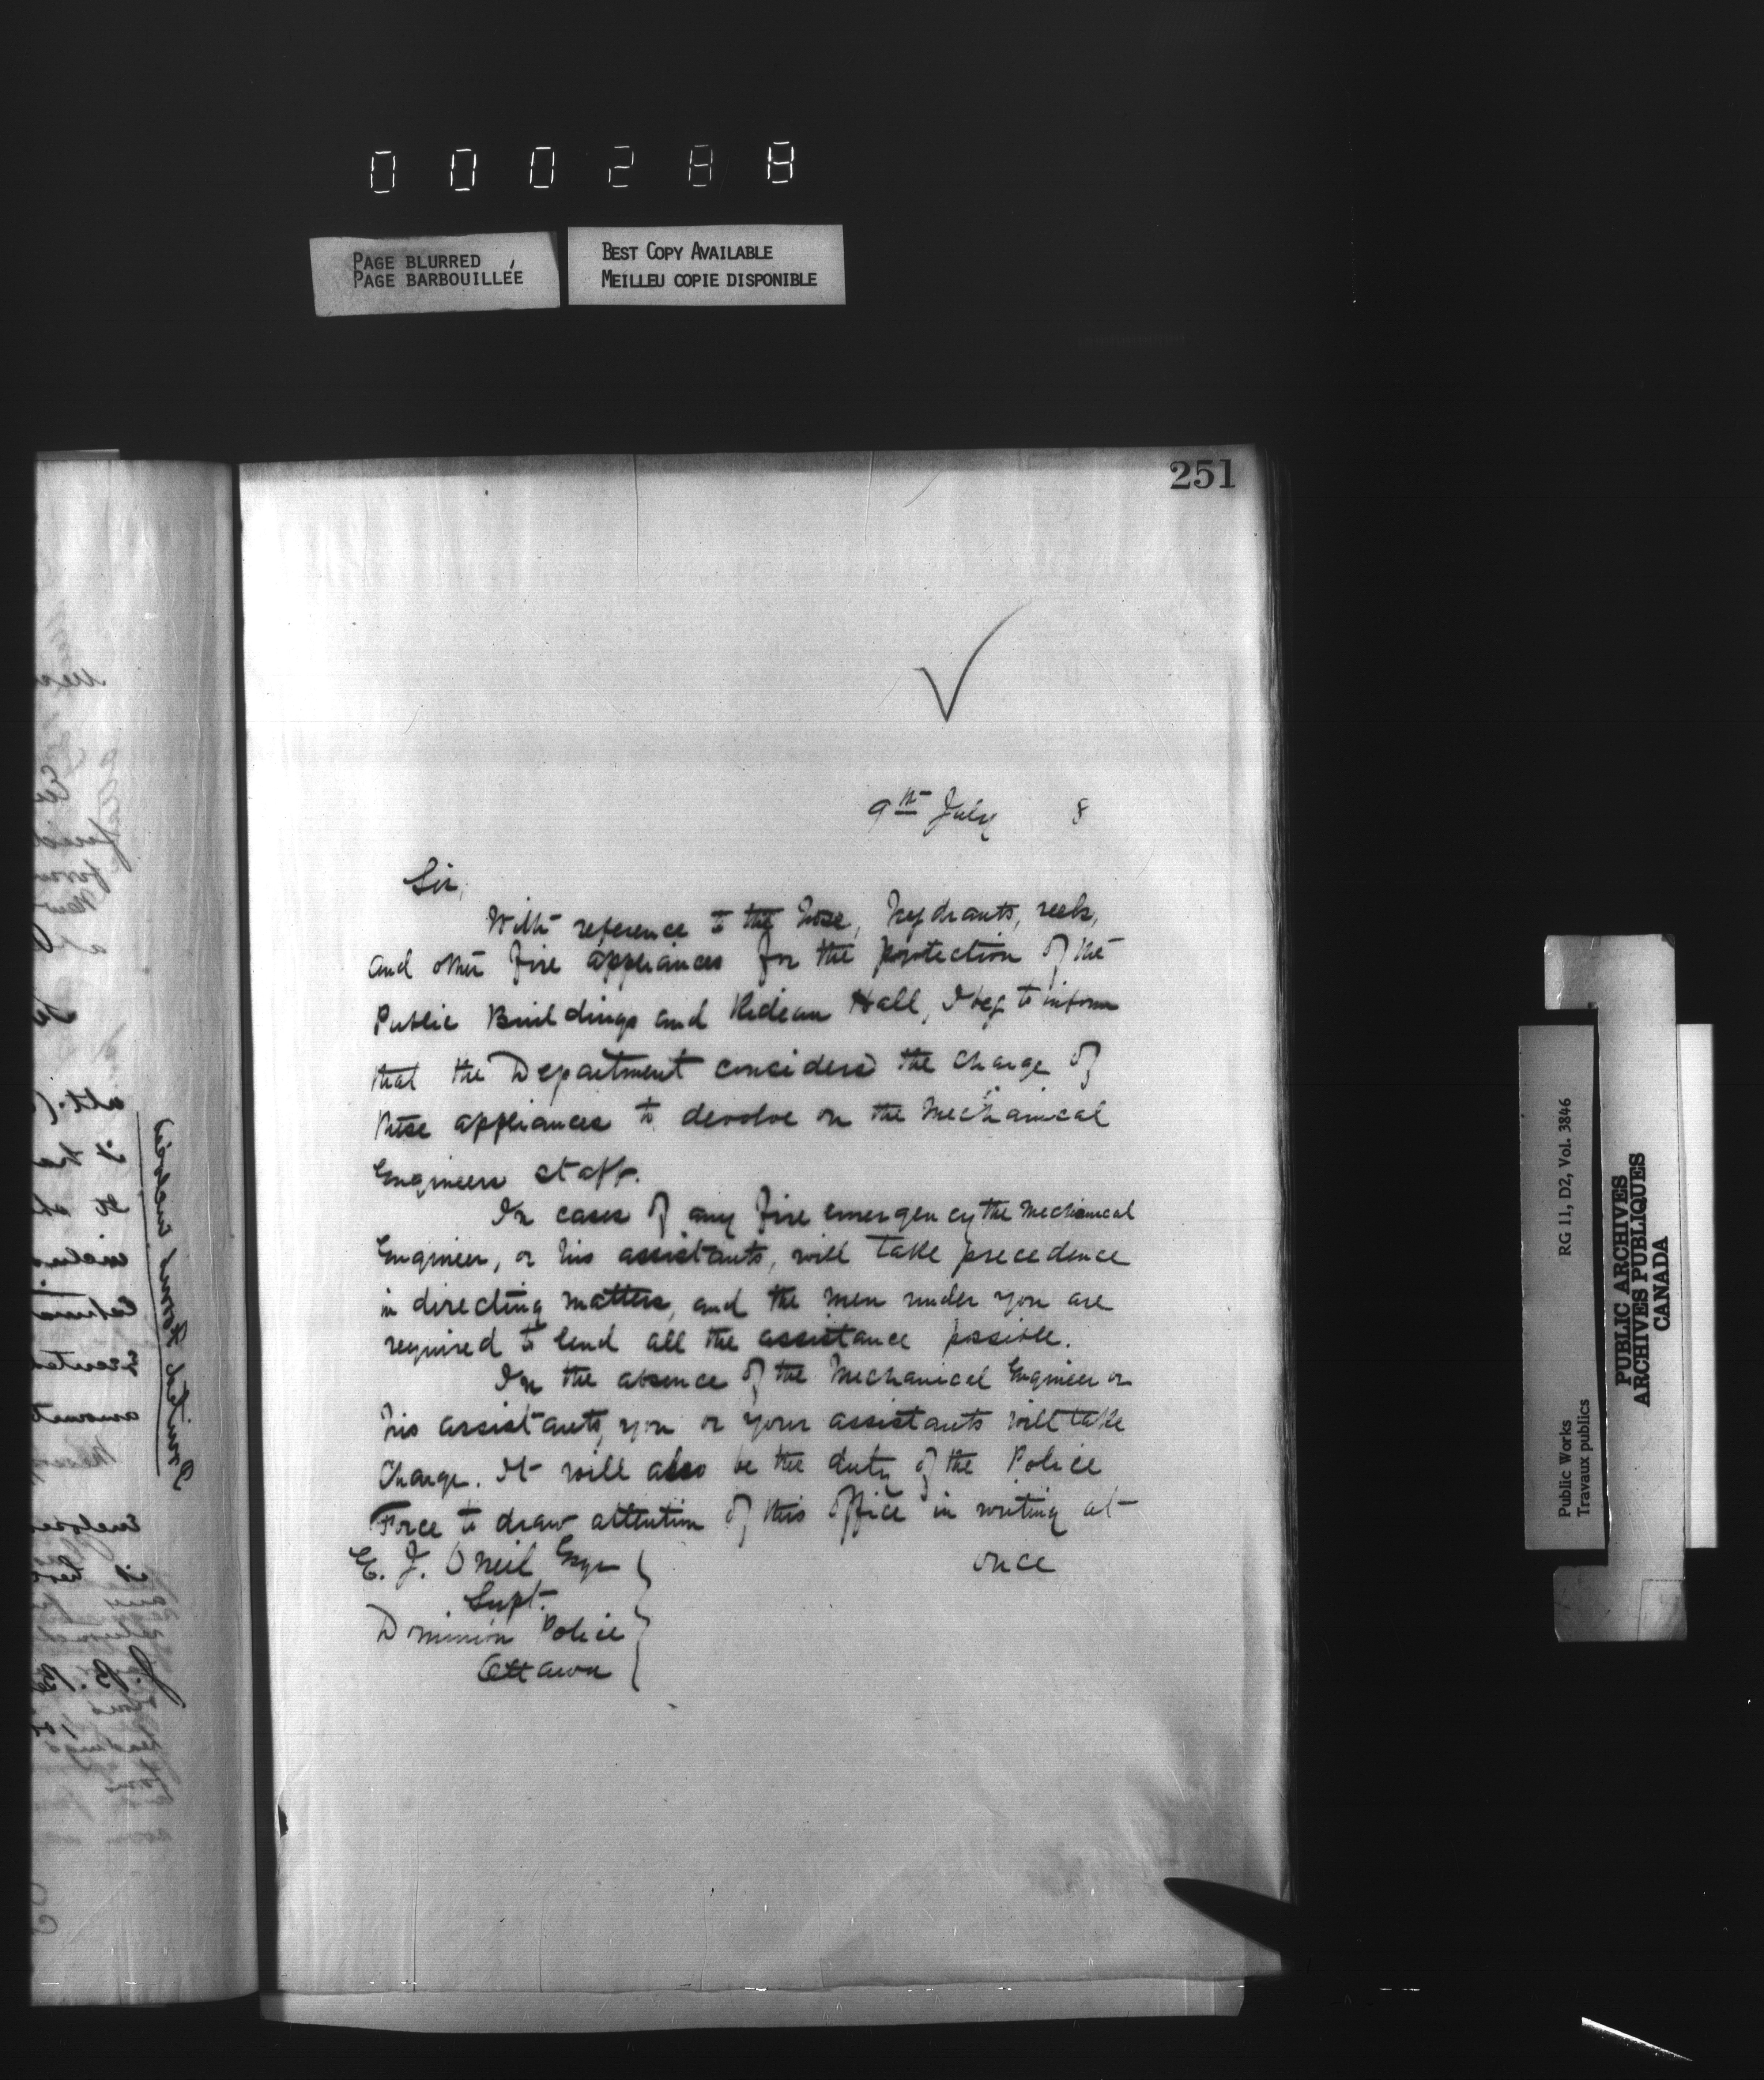 000288
PAGE BLURRED
PAGE BARBOUILLÉE
BEST COPY AVAILABLE
MEILLEU COPIE DISPONIBLE
251
9th July 8
Sir,
With reference to the hose, hydrants, reels,
and other fire appliances for the protection of the
Public Buildings and Rideau Hall, I beg to inform
that the Department considers the charge of
these appliances to devolve on the Mechanical
Engineers staff.
In cases of any fire emergency the Mechanical
Engineer, or his assistants, will take precedence
in directing matters, and the men under you are
required to lend all the assistance possible.
In the absence of the Mechanical Engineer or
his assistants, you or your assistants will take
charge. It will also be the duty of the Police
Force to draw attention of this Office in writing at
once
E. J. O'Neil Esqr
Supt.
Dominion Police
Ottawa
Printed Forms enclosed
Public Works RG 11, D2, Vol. 3846
Travaux publics
PUBLIC ARCHIVES
ARCHIVES PUBLIQUES
CANADA